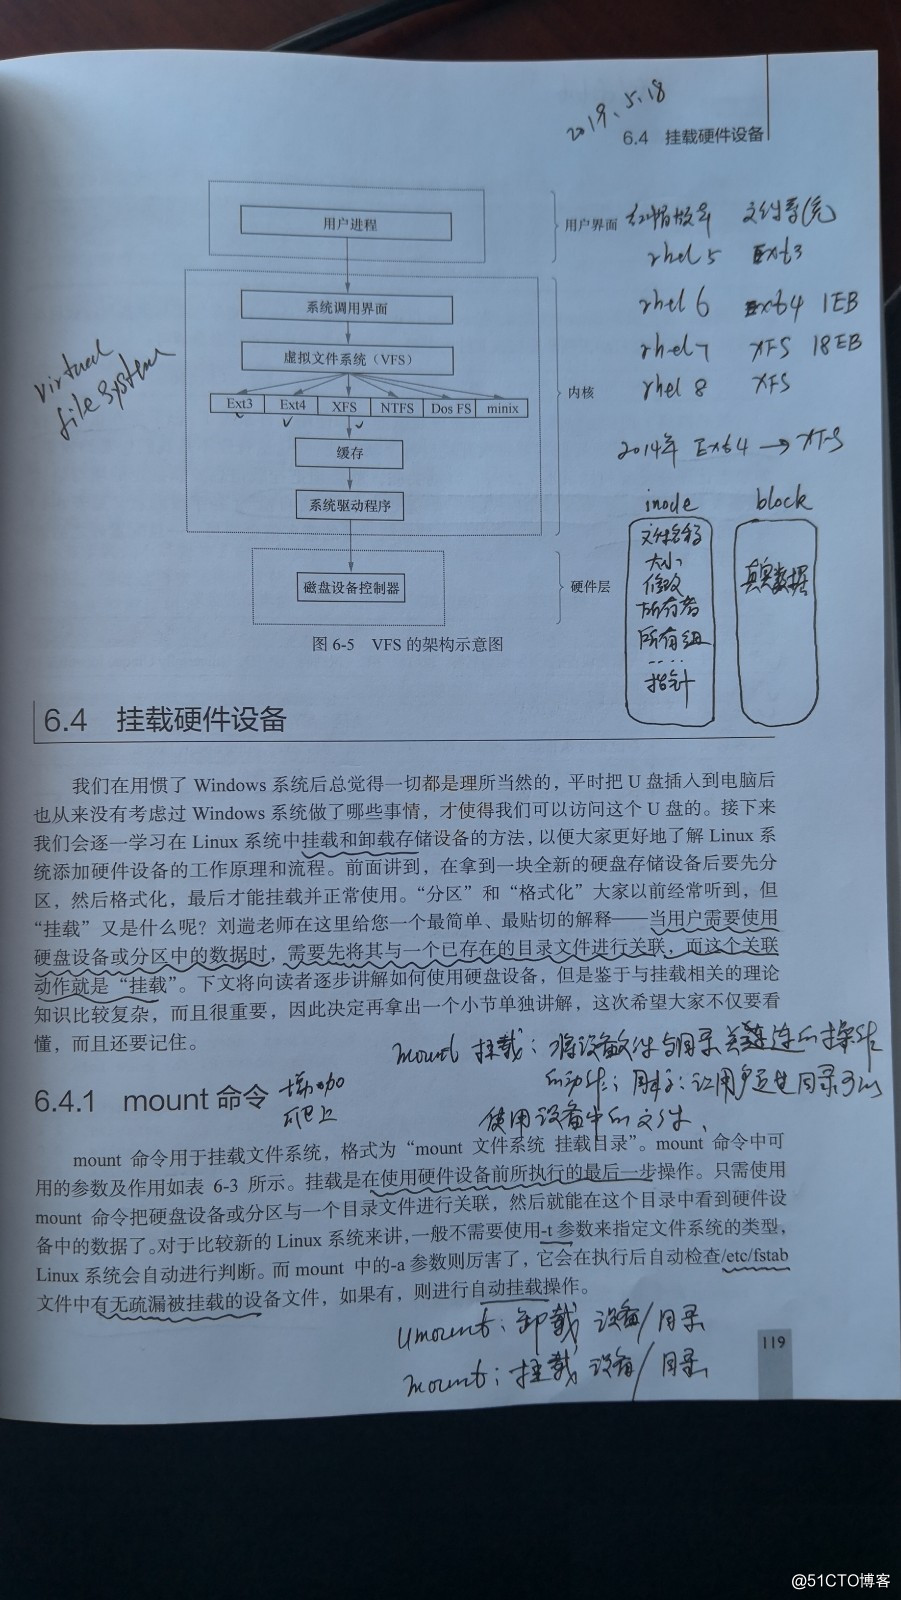 2019.5.18
6.4 挂载硬件设备
用户进程
用户界面
红帽版本 文件系统
rhel 5 Ext3
系统调用界面
rhel 6 Ext4 1EB
virtual
file System
虚拟文件系统（VFS）
rhel 7 XFS 18EB
内核
rhel 8 XFS
Ext3 Ext4 XFS NTFS Dos FS minix
缓存
2014年 Ext4 → XFS
系统驱动程序
inode block
文件名称
大小
修改
所有者
所有组
....
指针
真实数据
磁盘设备控制器
硬件层
图 6-5 VFS 的架构示意图
6.4 挂载硬件设备
我们在用惯了 Windows 系统后总觉得一切都是理所当然的，平时把 U 盘插入到电脑后
也从来没有考虑过 Windows 系统做了哪些事情，才使得我们可以访问这个 U 盘的。接下来
我们会逐一学习在 Linux 系统中挂载和卸载存储设备的方法，以便大家更好地了解 Linux 系
统添加硬件设备的工作原理和流程。前面讲到，在拿到一块全新的硬盘存储设备后要先分
区，然后格式化，最后才能挂载并正常使用。“分区”和“格式化”大家以前经常听到，但
“挂载”又是什么呢？刘遄老师在这里给您一个最简单、最贴切的解释——当用户需要使用
硬盘设备或分区中的数据时，需要先将其与一个已存在的目录文件进行关联，而这个关联
动作就是“挂载”。下文将向读者逐步讲解如何使用硬盘设备，但是鉴于与挂载相关的理论
知识比较复杂，而且很重要，因此决定再拿出一个小节单独讲解，这次希望大家不仅要看
懂，而且还要记住。
mount 挂载：将设备文件与目录关联连的操作
的动作；目的：让用户通过目录可以
使用设备中的文件、
6.4.1 mount 命令
增加
爬上
mount 命令用于挂载文件系统，格式为“mount 文件系统 挂载目录”。mount 命令中可
用的参数及作用如表 6-3 所示。挂载是在使用硬件设备前所执行的最后一步操作。只需使用
mount 命令把硬盘设备或分区与一个目录文件进行关联，然后就能在这个目录中看到硬件设
备中的数据了。对于比较新的 Linux 系统来讲，一般不需要使用-t 参数来指定文件系统的类型，
Linux 系统会自动进行判断。而 mount 中的-a 参数则厉害了，它会在执行后自动检查/etc/fstab
文件中有无疏漏被挂载的设备文件，如果有，则进行自动挂载操作。
umount：卸载 设备/目录
mount：挂载 设备/目录
119
@51CTO博客